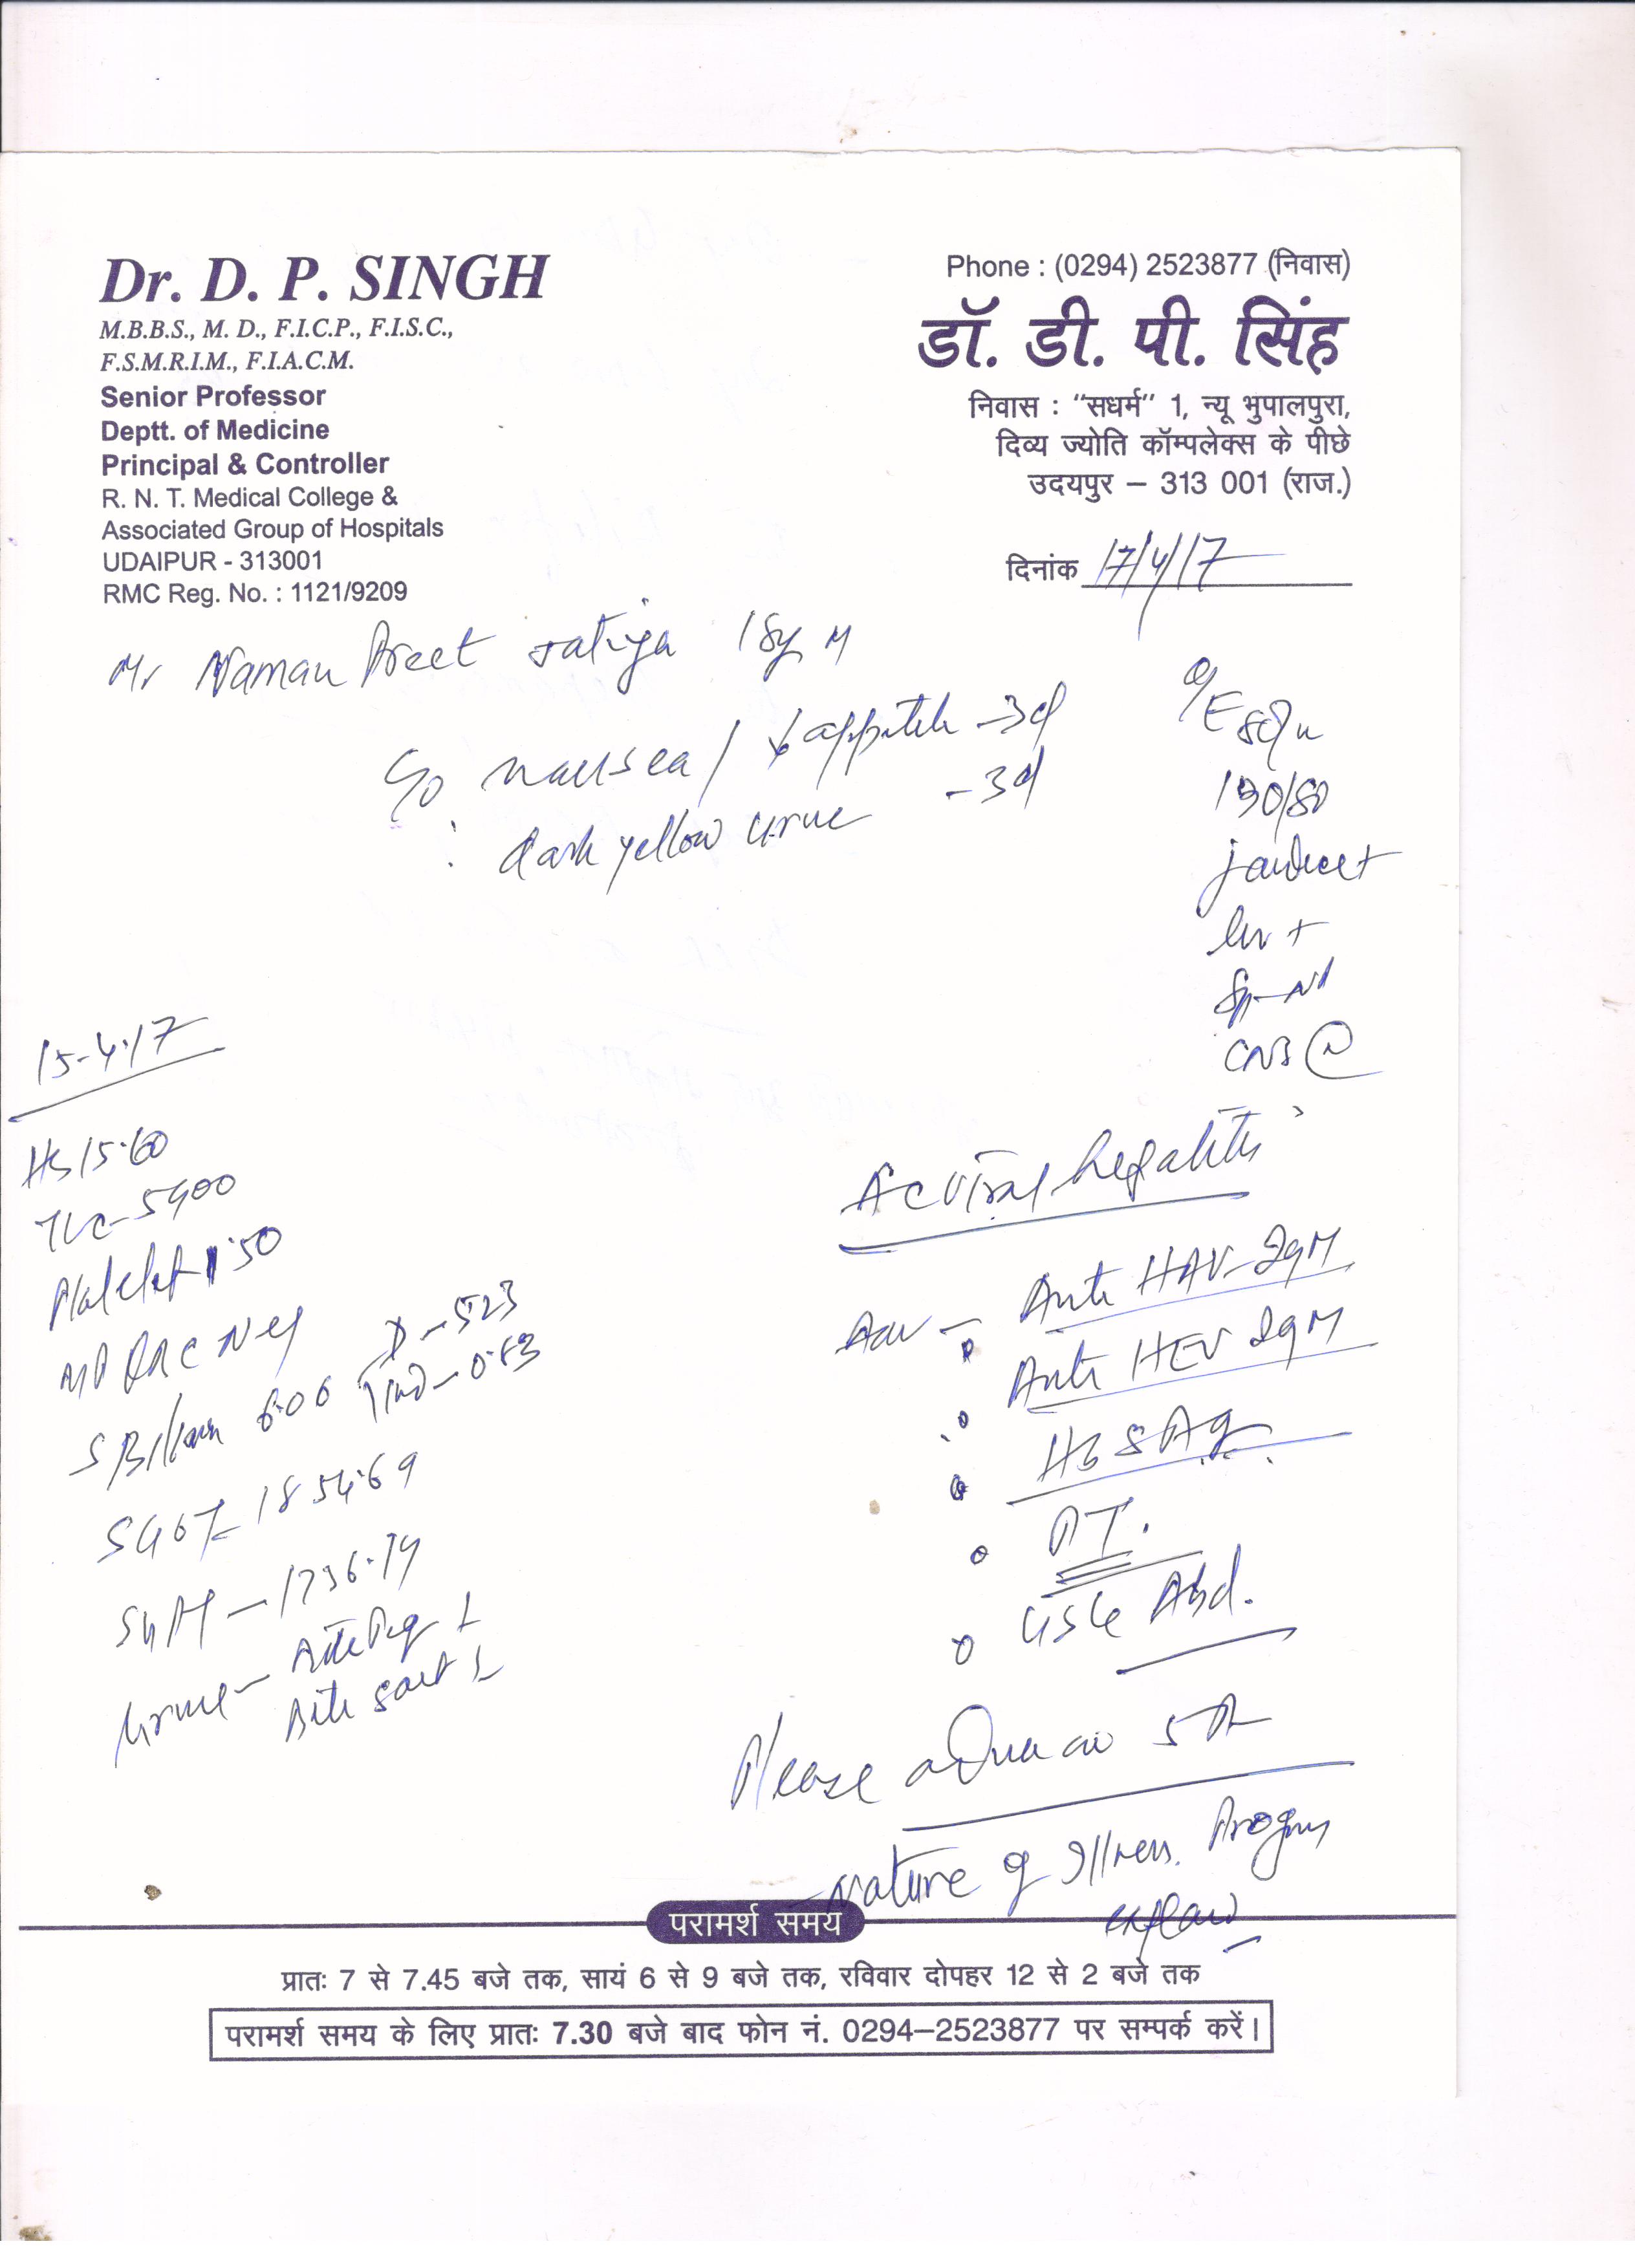 Dr. D. P. SINGH
M.B.B.S., M. D., F.I.C.P., F.I.S.C.,
F.S.M.R.I.M., F.I.A.C.M.
Senior Professor
Deptt. of Medicine
Principal & Controller
R. N. T. Medical College &
Associated Group of Hospitals
UDAIPUR - 313001
RMC Reg. No. : 1121/9209
Phone : (0294) 2523877 (निवास)
डॉ. डी. पी. सिंह
निवास : “सधर्म” 1, न्यू भुपालपुरा,
दिव्य ज्योति कॉम्पलेक्स के पीछे
उदयपुर – 313 001 (राज.)
दिनांक 17/4/17
Mr Naman Preet 18y M
C/o nausea / ↓ -3d
dark yellow urine -3d
O/E
130/80
jaundice+
liv +
CNS (N)
15-4-17
Hb 15.60
TLC-5900
Platelet 1.50
S Bil 6.06 D-523
Ind-0.83
SGOT- 1854.69
SGPT - 1736.74
Urine- Bile Pig +
Bile salt +
Ac Viral hepatitis
Adv - Anti HAV IgM
Anti HEV IgM
HBsAg
PT.
USG Abd.
Please
nature of illness.
परामर्श समय
प्रातः 7 से 7.45 बजे तक, सायं 6 से 9 बजे तक, रविवार दोपहर 12 से 2 बजे तक
परामर्श समय के लिए प्रातः 7.30 बजे बाद फोन नं. 0294–2523877 पर सम्पर्क करें।